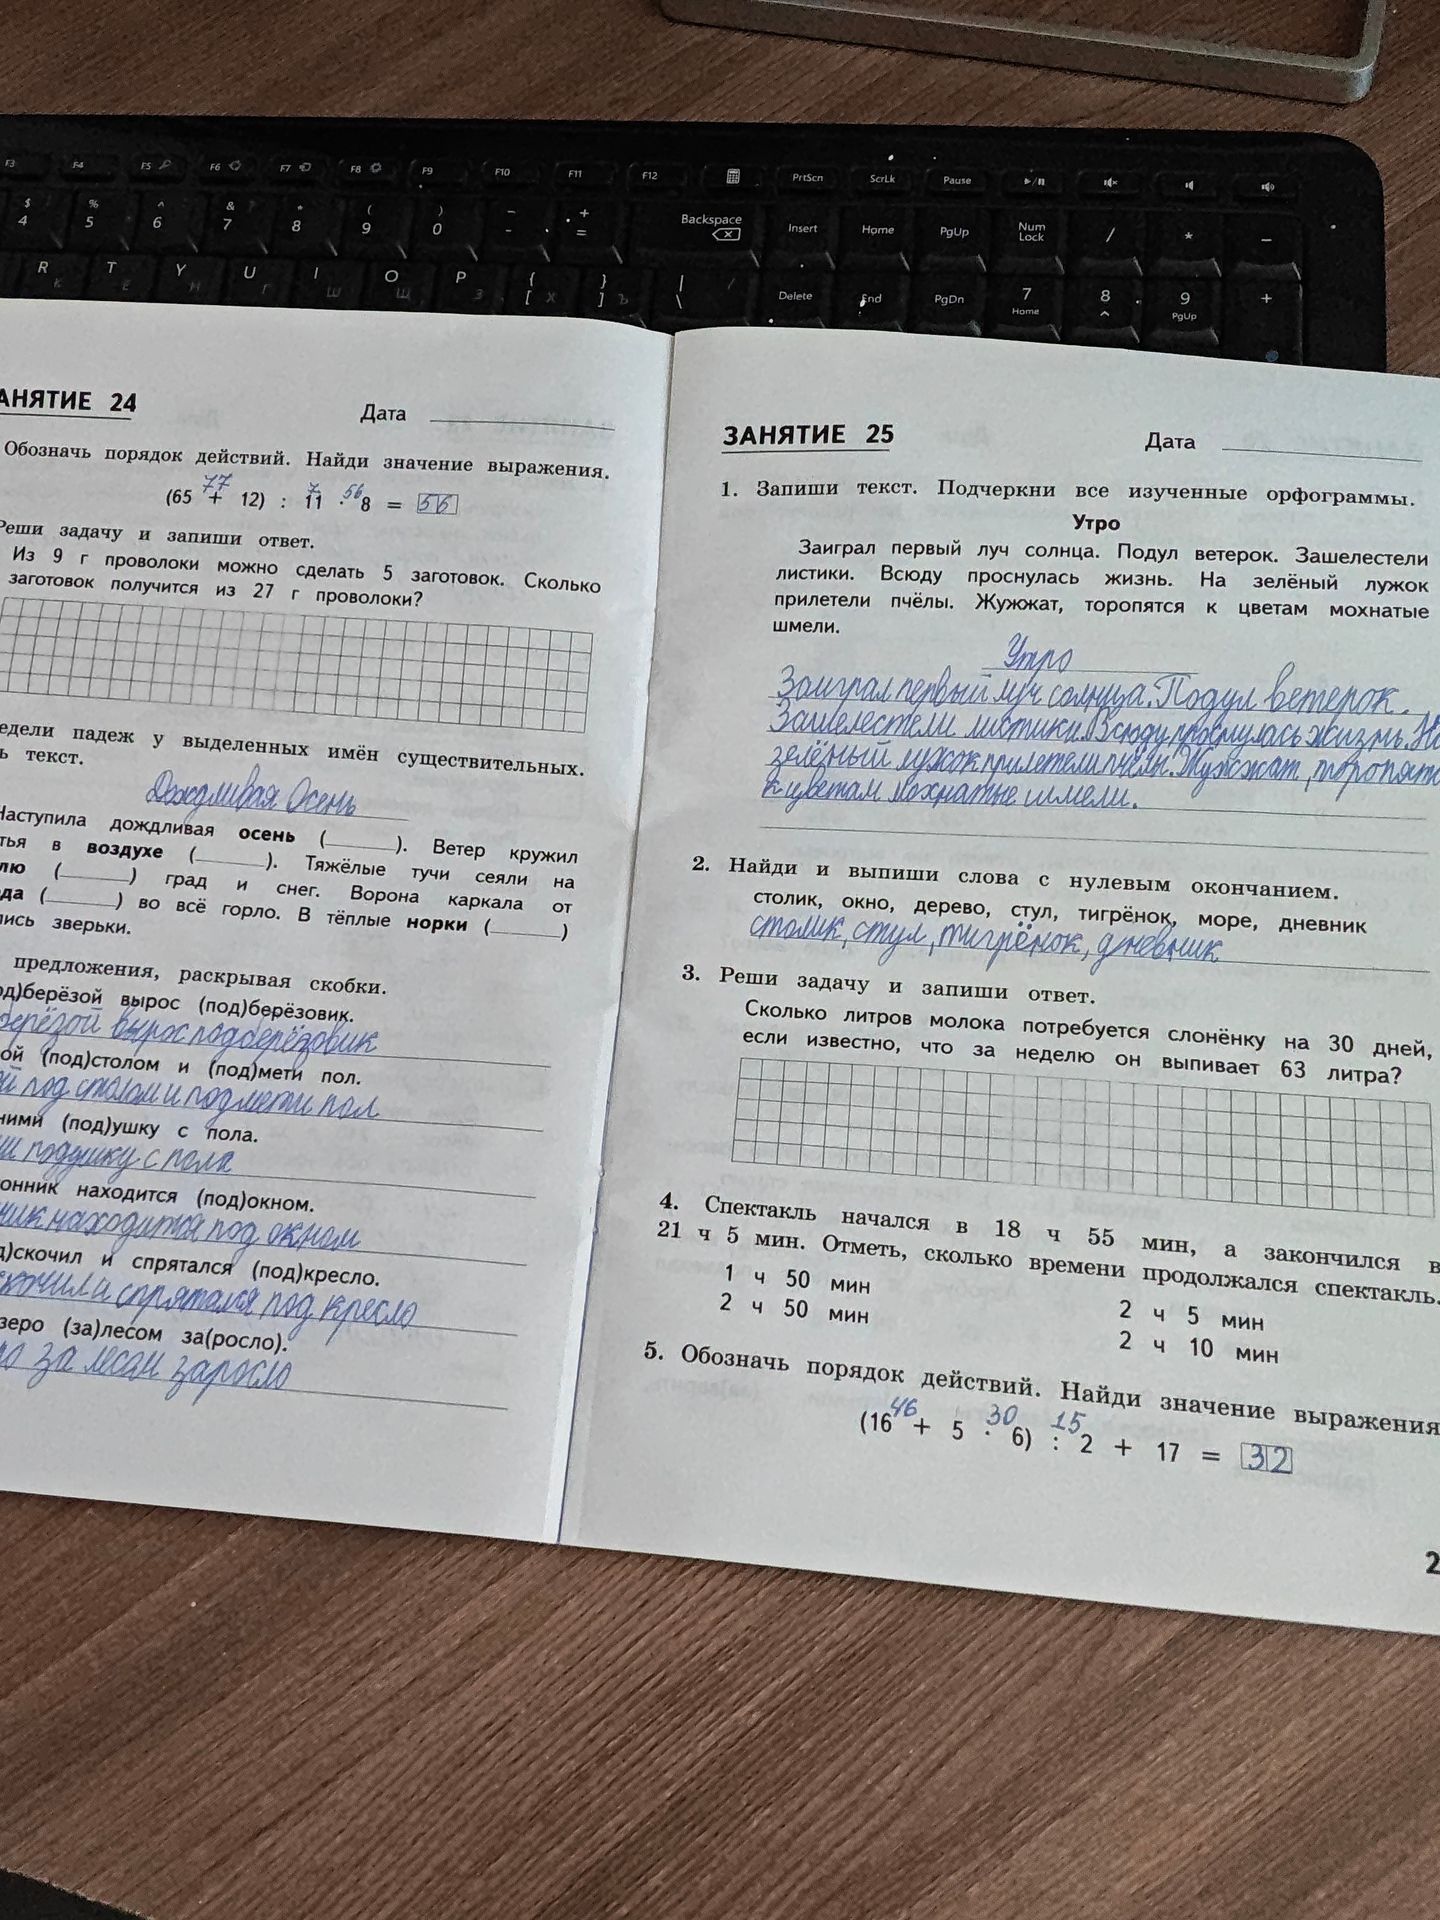 F3 F4 F5 F6 F7 F8 F9 F10 F11 F12 PrtScn ScrLk Pause
$ 4 % 5 ^ 6 & 7 * 8 ( 9 ) 0 - + = Backspace Insert Home PgUp Num Lock / * -
R К T Е Y Н U Г I Ш O Щ P З { [ Х } ] Ъ | \ / Delete End PgDn 7 Home 8 ^ 9 PgUp +
АНЯТИЕ 24 Дата
Обозначь порядок действий. Найди значение выражения.
77 7 56
(65 + 12) : 11 · 8 = 56
Реши задачу и запиши ответ.
Из 9 г проволоки можно сделать 5 заготовок. Сколько
заготовок получится из 27 г проволоки?
едели падеж у выделенных имён существительных.
ь текст.
Дождливая Осень
Наступила дождливая осень (______). Ветер кружил
тья в воздухе (______). Тяжёлые тучи сеяли на
лю (______) град и снег. Ворона каркала от
да (______) во всё горло. В тёплые норки (______)
лись зверьки.
предложения, раскрывая скобки.
од)берёзой вырос (под)берёзовик.
берёзой вырос подберёзовик
ой (под)столом и (под)мети пол.
ой под столом и подмети пол
ними (под)ушку с пола.
ни подушку с пола
онник находится (под)окном.
ник находится под окном
д)скочил и спрятался (под)кресло.
скочил и спрятался под кресло
зеро (за)лесом за(росло).
ро за лесом заросло
ЗАНЯТИЕ 25 Дата
1. Запиши текст. Подчеркни все изученные орфограммы.
Утро
Заиграл первый луч солнца. Подул ветерок. Зашелестели
листики. Всюду проснулась жизнь. На зелёный лужок
прилетели пчёлы. Жужжат, торопятся к цветам мохнатые
шмели.
Утро
Заиграл первый луч солнца. Подул ветерок.
Зашелестели листики. Всюду проснулась жизнь. На
зелёный лужок прилетели пчёлы. Жужжат, торопятс
к цветам мохнатые шмели.
2. Найди и выпиши слова с нулевым окончанием.
столик, окно, дерево, стул, тигрёнок, море, дневник
столик, стул, тигрёнок, дневник
3. Реши задачу и запиши ответ.
Сколько литров молока потребуется слонёнку на 30 дней,
если известно, что за неделю он выпивает 63 литра?
4. Спектакль начался в 18 ч 55 мин, а закончился в
21 ч 5 мин. Отметь, сколько времени продолжался спектакль.
1 ч 50 мин 2 ч 5 мин
2 ч 50 мин 2 ч 10 мин
5. Обозначь порядок действий. Найди значение выражения
46 30 15
(16 + 5 · 6) : 2 + 17 = 32
2